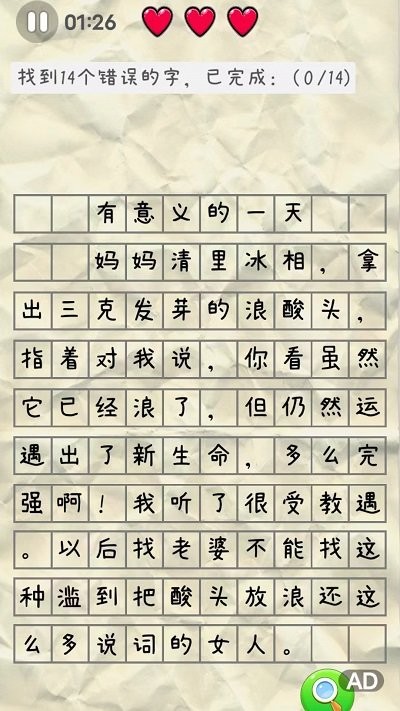 01:26
找到14个错误的字，已完成：（0/14)
有意义的一天
妈妈清里冰相，拿
出三克发芽的浪酸头，
指着对我说，你看虽然
它已经浪了，但仍然运
遇出了新生命，多么完
强啊！我听了很受教遇
。以后找老婆不能找这
种滥到把酸头放浪还这
么多说词的女人。
AD